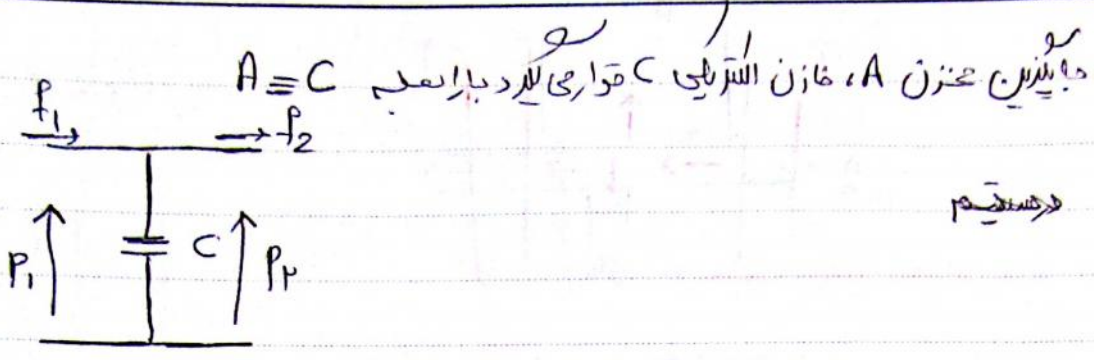 جایگزین مخزن A، خازن الکتریکی C قرار می گیرد با رابطه A ≡ C
مستقیم
f₁ f₂
P₁ C P₂